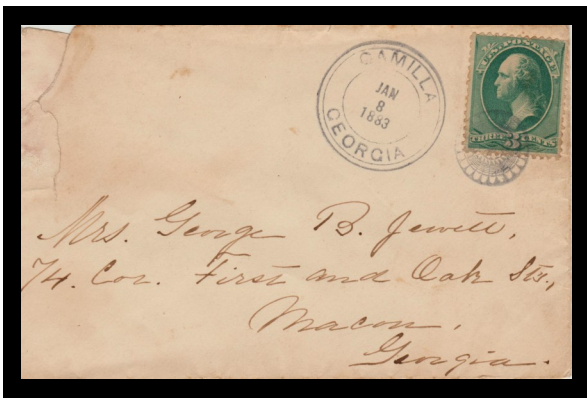 CAMILLA
JAN
8
1883
GEORGIA
U.S. POSTAGE
THREE 3 CENTS
Mrs. George B. Jewett,
74. Cor. First and Oak Sts.,
Macon,
Georgia.